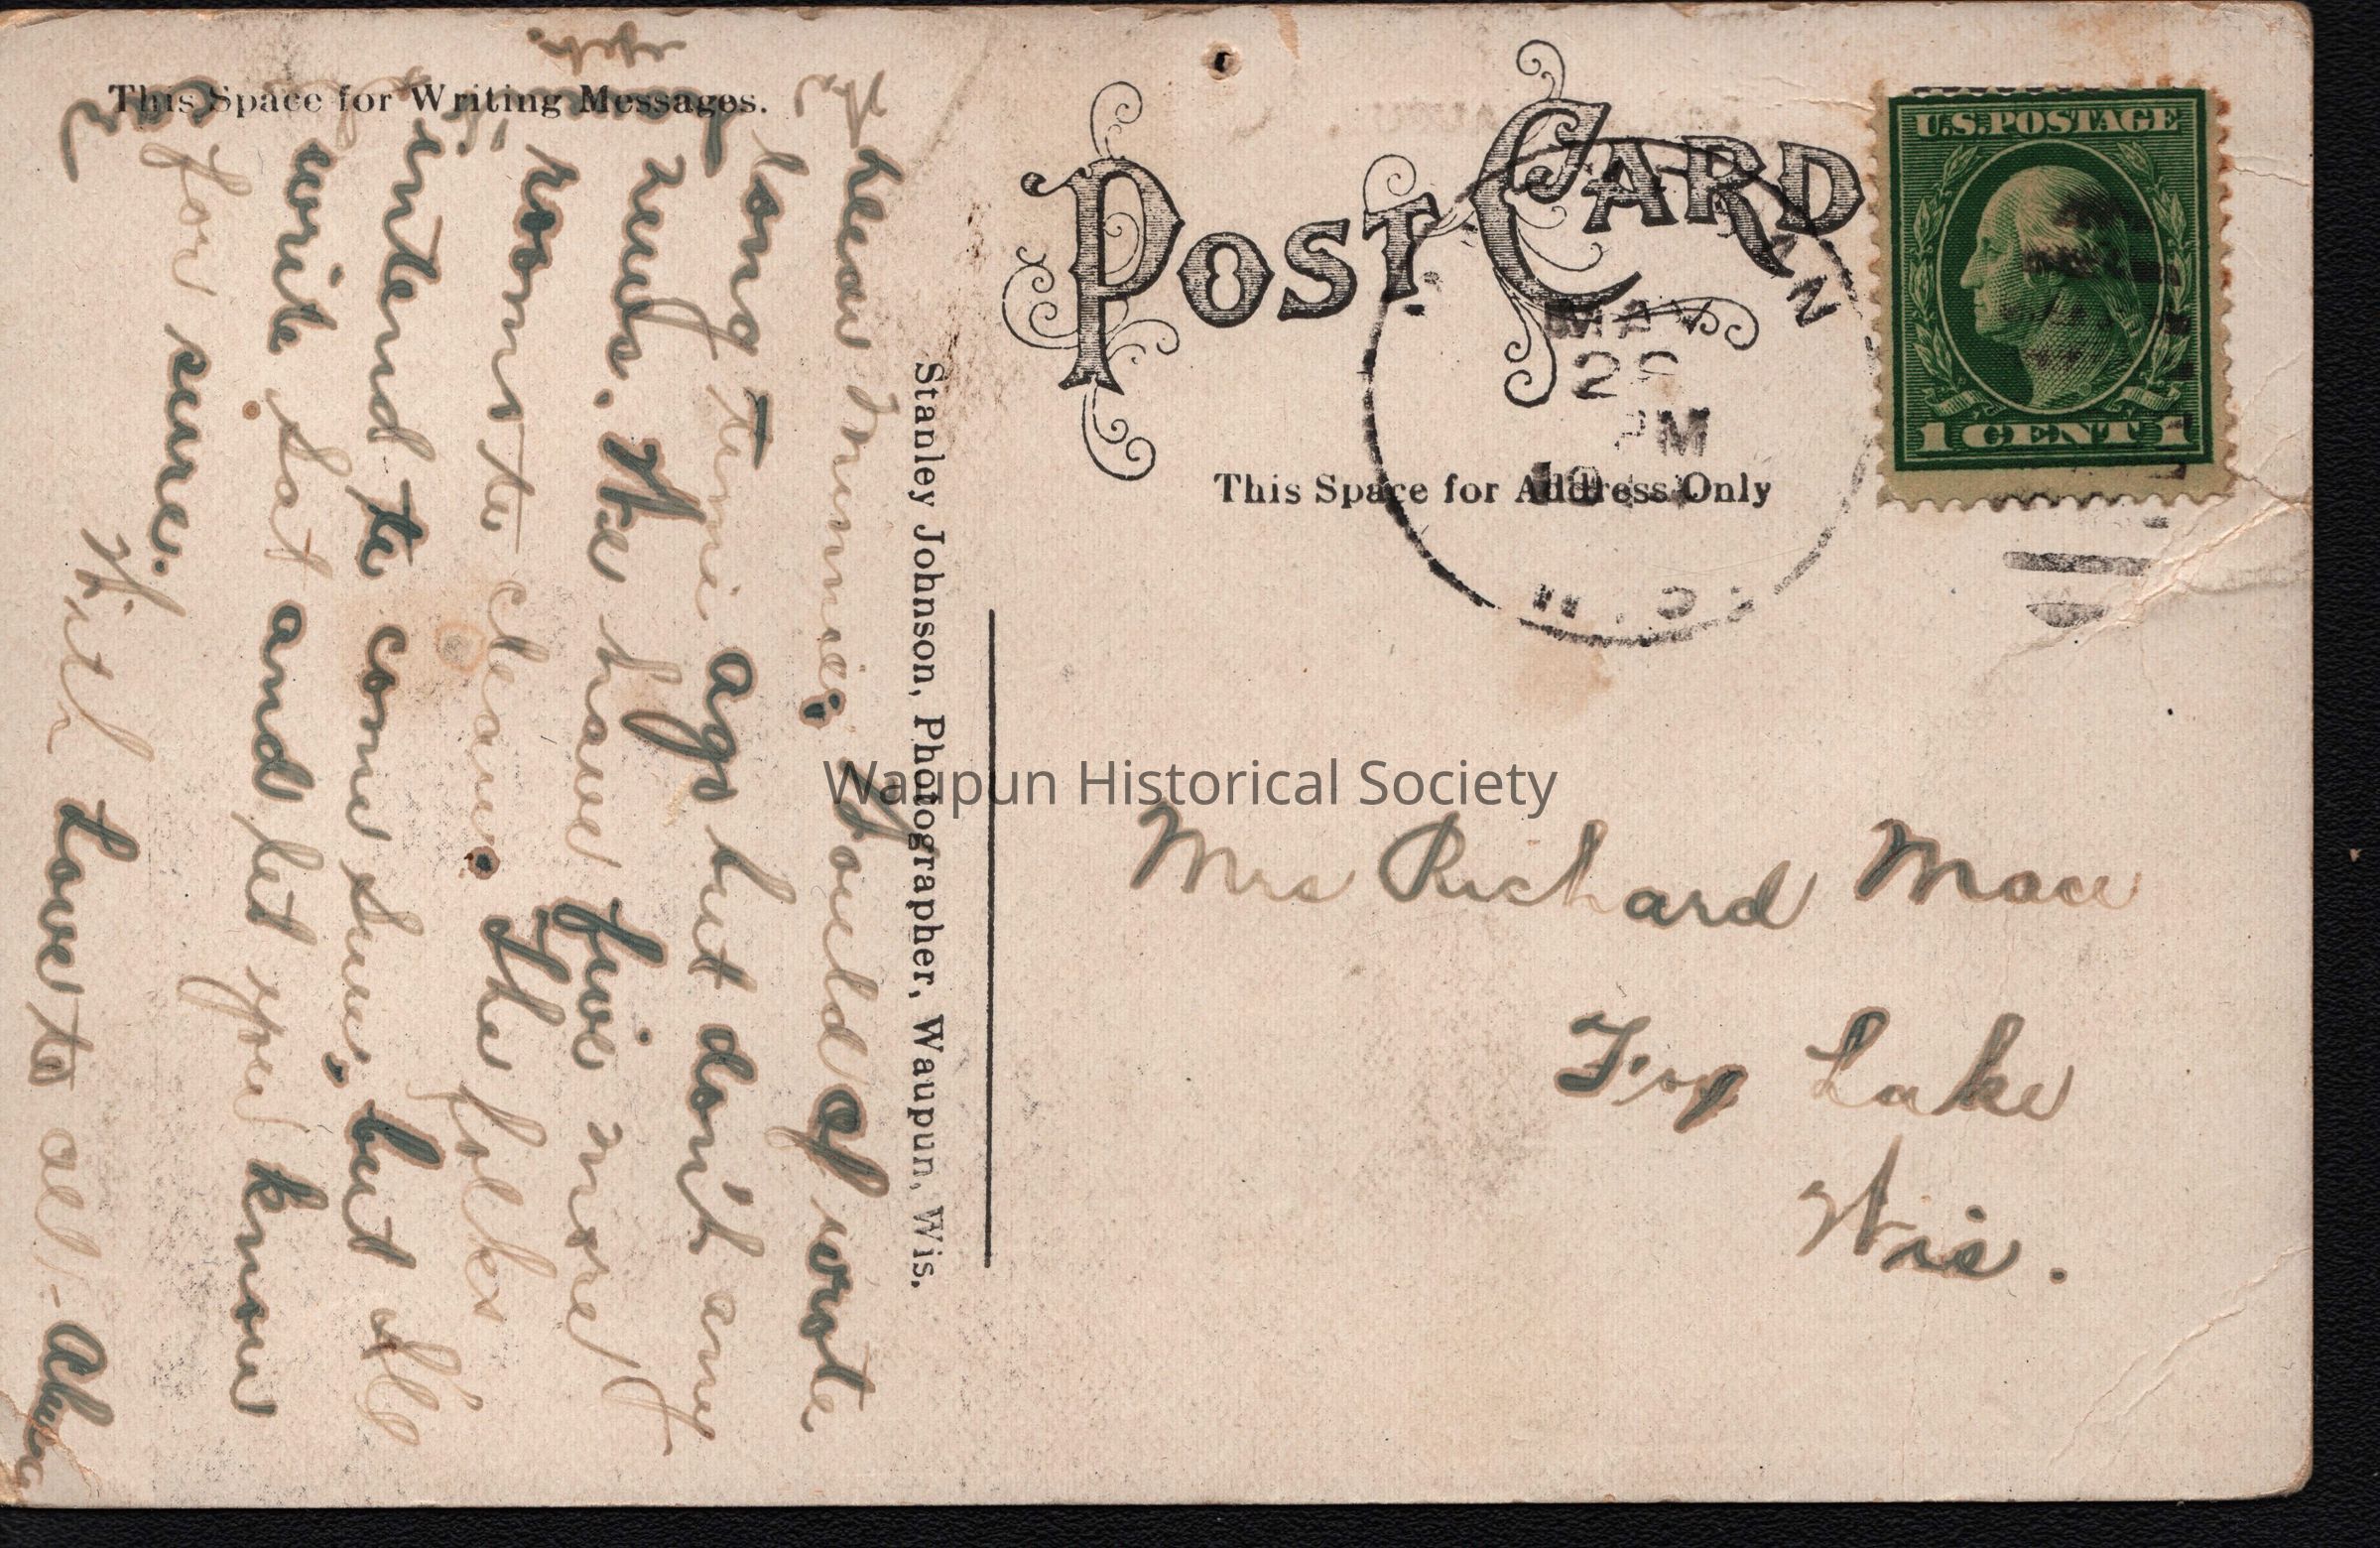 This Space for Writing Messages.
POST CARD
U.S. POSTAGE
1 CENT 1
MAY
PM
This Space for Address Only
Stanley Johnson, Photographer, Waupun, Wis.
Waupun Historical Society
Mrs Richard Mace
Fox Lake
Wis.
Dear Minnie: Would of wrote
long time ago but don't any
news. We have five more
rooms to clean. The folks
intend to come Sun. but I'll
write Sat and let you know
for sure.
With Love to all-
yet.